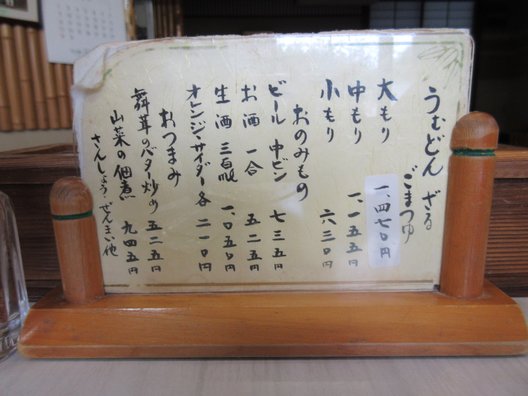 うむどん ざる
ごまつゆ
大もり 一、四七〇円
中もり 一、一五五円
小もり 六三〇円
おのみもの
ビール 中ビン 七三五円
お酒 一合 五二五円
生酒 三百ml 一、〇五〇円
オレンジ・サイダー各 二一〇円
おつまみ
舞茸のバター炒め 五二五円
山菜の佃煮 九四五円
さんしょう ぜんまい他